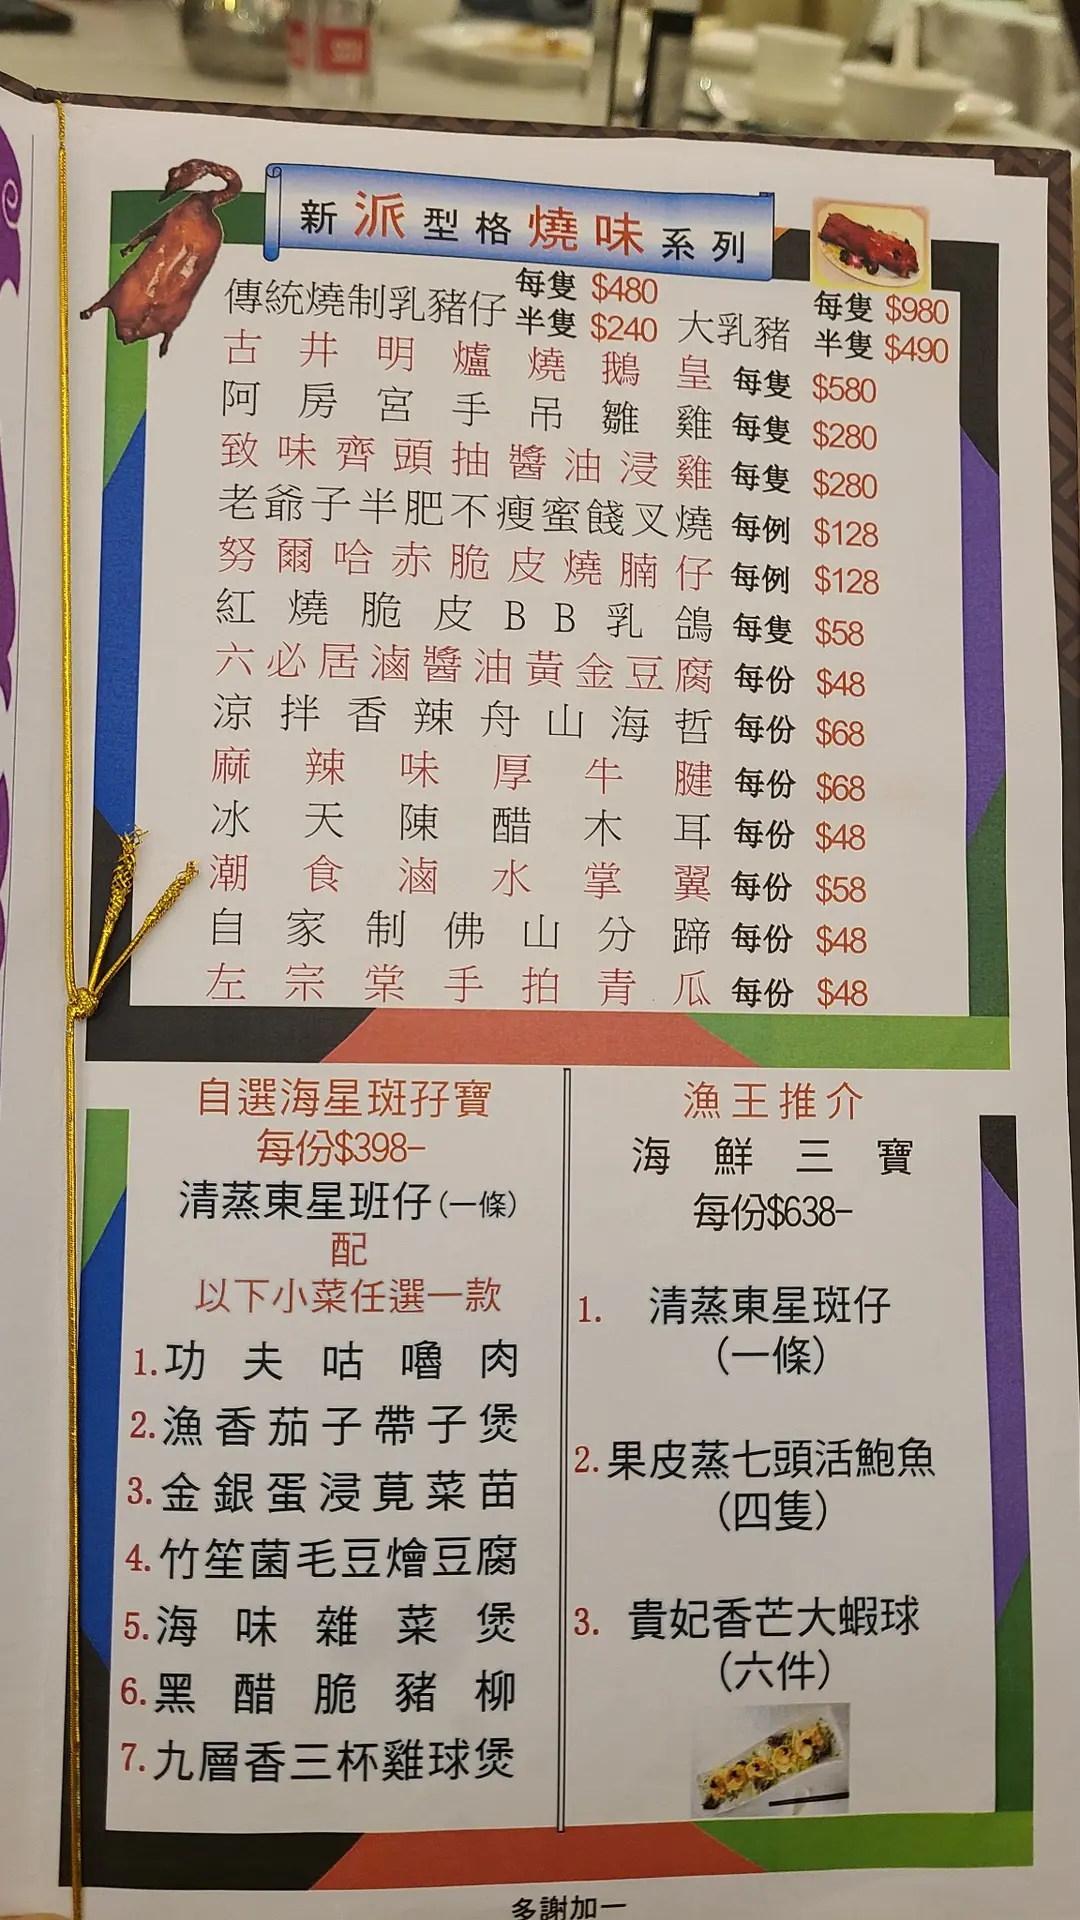 新派型格燒味系列
傳統燒制乳豬仔 每隻 $480 半隻 $240 大乳豬 每隻 $980 半隻 $490
古井明爐燒鵝皇 每隻 $580
阿房宮手吊雛雞 每隻 $280
致味齊頭抽醬油浸雞 每隻 $280
老爺子半肥不瘦蜜餞叉燒 每例 $128
努爾哈赤脆皮燒腩仔 每例 $128
紅燒脆皮BB乳鴿 每隻 $58
六必居滷醬油黃金豆腐 每份 $48
涼拌香辣舟山海哲 每份 $68
麻辣味厚牛腱 每份 $68
冰天陳醋木耳 每份 $48
潮食滷水掌翼 每份 $58
自家制佛山分蹄 每份 $48
左宗棠手拍青瓜 每份 $48
自選海星斑孖寶
每份$398-
清蒸東星班仔(一條)
配
以下小菜任選一款
1.功夫咕嚕肉
2.漁香茄子帶子煲
3.金銀蛋浸莧菜苗
4.竹笙菌毛豆燴豆腐
5.海味雜菜煲
6.黑醋脆豬柳
7.九層香三杯雞球煲
漁王推介
海鮮三寶
每份$638-
1. 清蒸東星斑仔
(一條)
2.果皮蒸七頭活鮑魚
(四隻)
3. 貴妃香芒大蝦球
(六件)
多謝加一